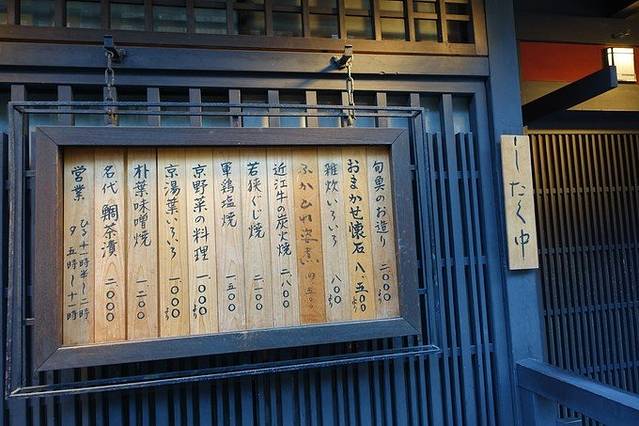 旬魚のお造り 二.〇〇〇より
おまかせ懐石 八.五〇〇より
雑炊いろいろ 八〇〇より
ふかひれ姿煮 四.五〇〇
近江牛の炭火焼 二.八〇〇
若狭ぐじ焼 二.一〇〇
軍鶏塩焼 一.五〇〇
京野菜の料理 一.〇〇〇より
京湯葉いろいろ 一.〇〇〇より
朴葉味噌焼 一.二〇〇
名代 鯛茶漬 二.〇〇〇
営業 ひる十一時半〜二時
夕 五時〜十一時
したく中